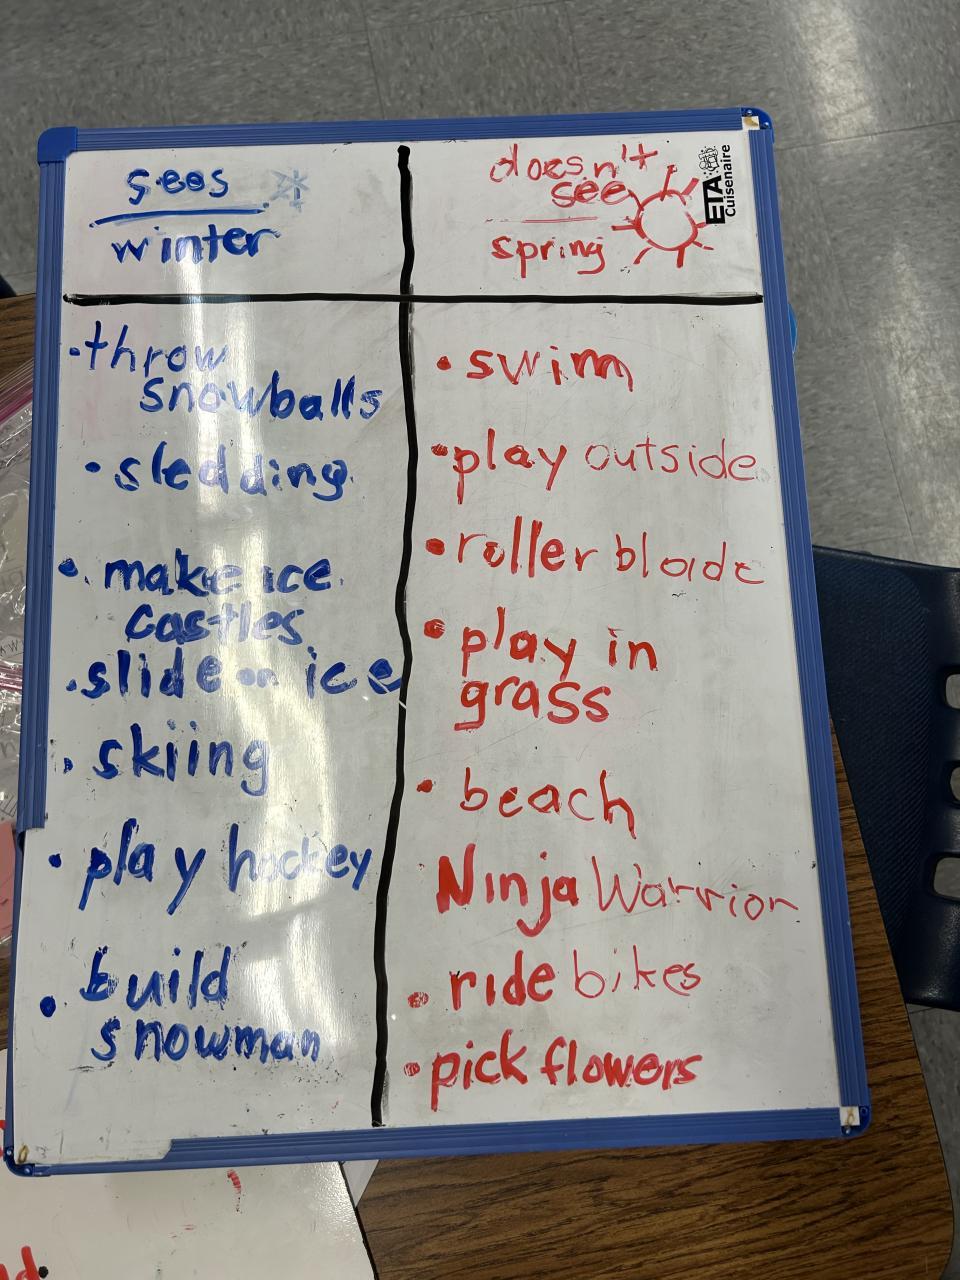 sees
winter
doesn't
see
spring
ETA
Cuisenaire
•throw
snowballs
•sledding
•make ice
castles
•slide on ice
•skiing
•play hockey
•build
snowman
•swim
•play outside
•roller blade
•play in
grass
•beach
Ninja Warrior
•ride bikes
•pick flowers